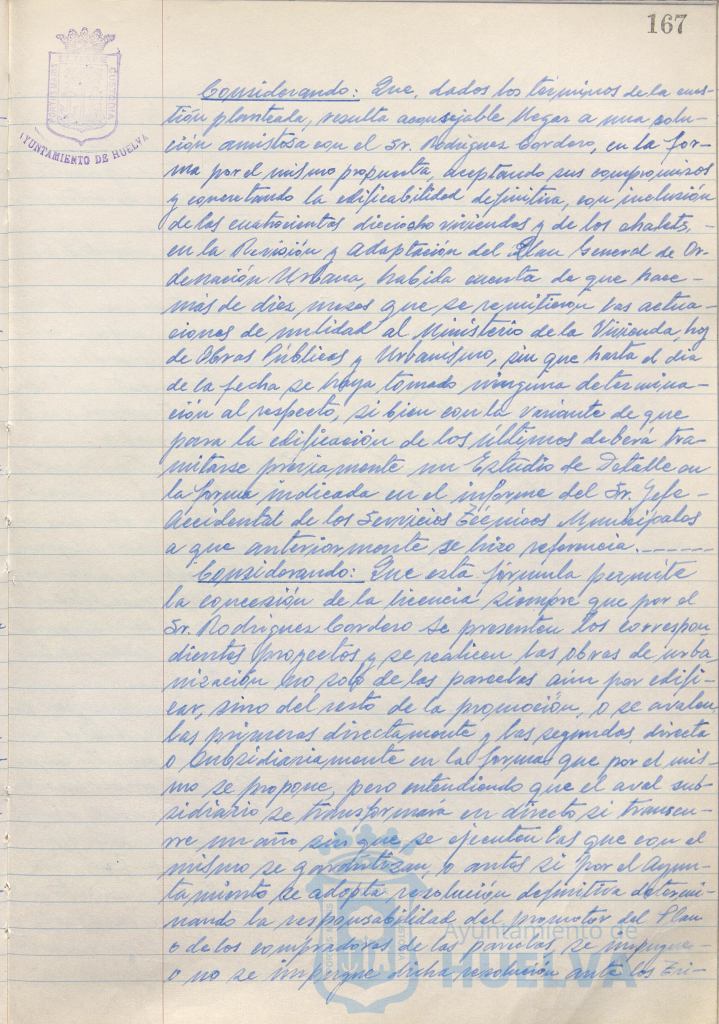 167
AYUNTAMIENTO DE HUELVA
Considerando: Que, dados los términos de la cues-
tión planteada, resulta aconsejable llegar a una solu-
ción amistosa con el Sr. Rodríguez Cordero, en la for-
ma por el mismo propuesta, aceptando sus compromisos
y concretando la edificabilidad definitiva, con inclusión
de las cuatrocientas dieciocho viviendas y de los chalets,-
en la Revisión y Adaptación del Plan General de Or-
denación Urbana, habida cuenta de que hace-
más de diez meses que se remitieron las actua-
ciones de nulidad al Ministerio de la Vivienda, hoy
de Obras Públicas y Urbanismo, sin que hasta el día
de la fecha se haya tomado ninguna determina-
ción al respecto, si bien con la variante de que
para la edificación de los últimos deberá tra-
mitarse previamente un Estudio de Detalle en
la forma indicada en el informe del Sr. Jefe-
Accidental de los Servicios Técnicos Municipales
a que anteriormente se hizo referencia.------
Considerando: Que esta fórmula permite
la concesión de la licencia siempre que por el
Sr. Rodríguez Cordero se presenten los correspon-
dientes proyectos y se realicen las obras de urba-
nización no solo de las parcelas aún por edifi-
car, sino del resto de la promoción, o se avalen
las primeras directamente y las segundas directa
o subsidiariamente en la forma que por el mis-
mo se propone, pero entendiendo que el aval sub-
sidiario se transformará en directo si transcu-
rre un año sin que se ejecuten las que con el
mismo se garantizan, o antes si por el Ayun-
tamiento se adopta resolución definitiva determi-
nando la responsabilidad del promotor del Plan
o de los compradores de las parcelas, se impugne-
o no se impugne dicha resolución ante los Tri-
Ayuntamiento de
HUELVA